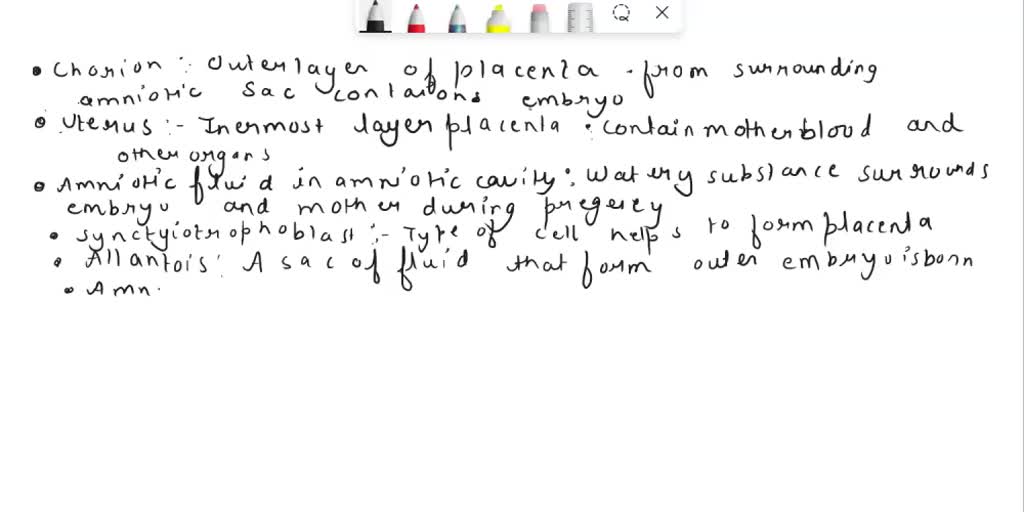 • Chorion : Outerlayer of placenta . from surrounding
amniotic Sac contations embryo
• Uterus :- Inermost layer placenta : contain mother blood and
other organs
• Amniotic fluid in amniotic cavity : Watery substance surrounds
embryo and mother during pregency
• Synctyiotrophoblast :- Type of cell helps to form placenta
• Allantois : A sac of fluid that form outer embryo is born
• Amn.